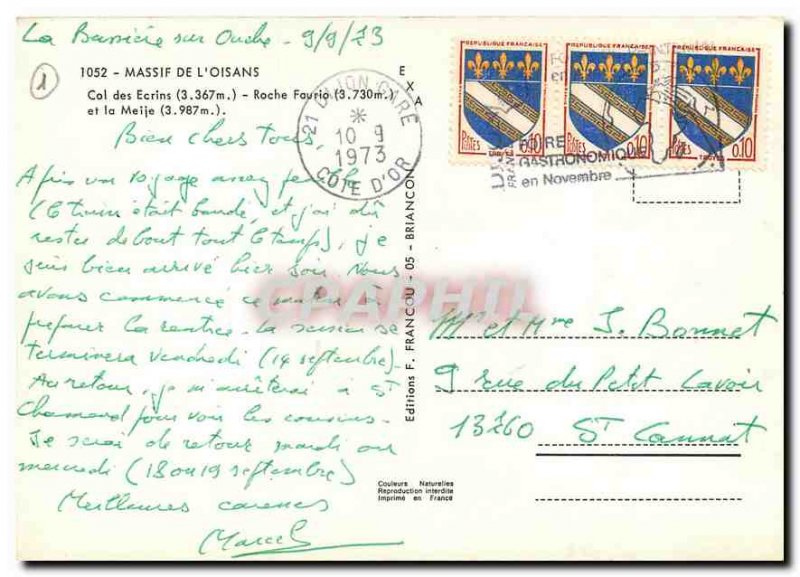 La Bussière sur Ouche - 9/9/73
1
1052 - MASSIF DE L'OISANS
Col des Ecrins (3.367m.) - Roche Faurio (3.730m.)
et la Meije (3.987m.).
EXA
Bien chers tous,
Après un voyage assez pénible
(le train était bondé, et j'ai dû
rester debout tout le temps), je
suis bien arrivé hier soir. Nous
avons commencé ce matin à
préparer la rentrée. La session se
terminera vendredi (14 septembre).
Au retour, je m'arrêterai à St
Chamond pour voir les cousins.
Je serai de retour mardi ou
mercredi (18 ou 19 septembre)
Meilleures caresses
Marcel
Editions F. FRANCOU - 05 - BRIANCON
21 DIJON GARE
10 9
1973
COTE D'OR
REPUBLIQUE FRANCAISE
Postes
0,10
TROYES
REPUBLIQUE FRANCAISE
Postes
0,10
REPUBLIQUE FRANCAISE
Postes
0,10
TROYES
FOIRE
GASTRONOMIQUE
en Novembre
CPAPHIL
Mr et Mme J. Bonnet
9 rue du Petit Lavoir
13760 St Cannat
Couleurs Naturelles
Reproduction interdite
Imprimé en France